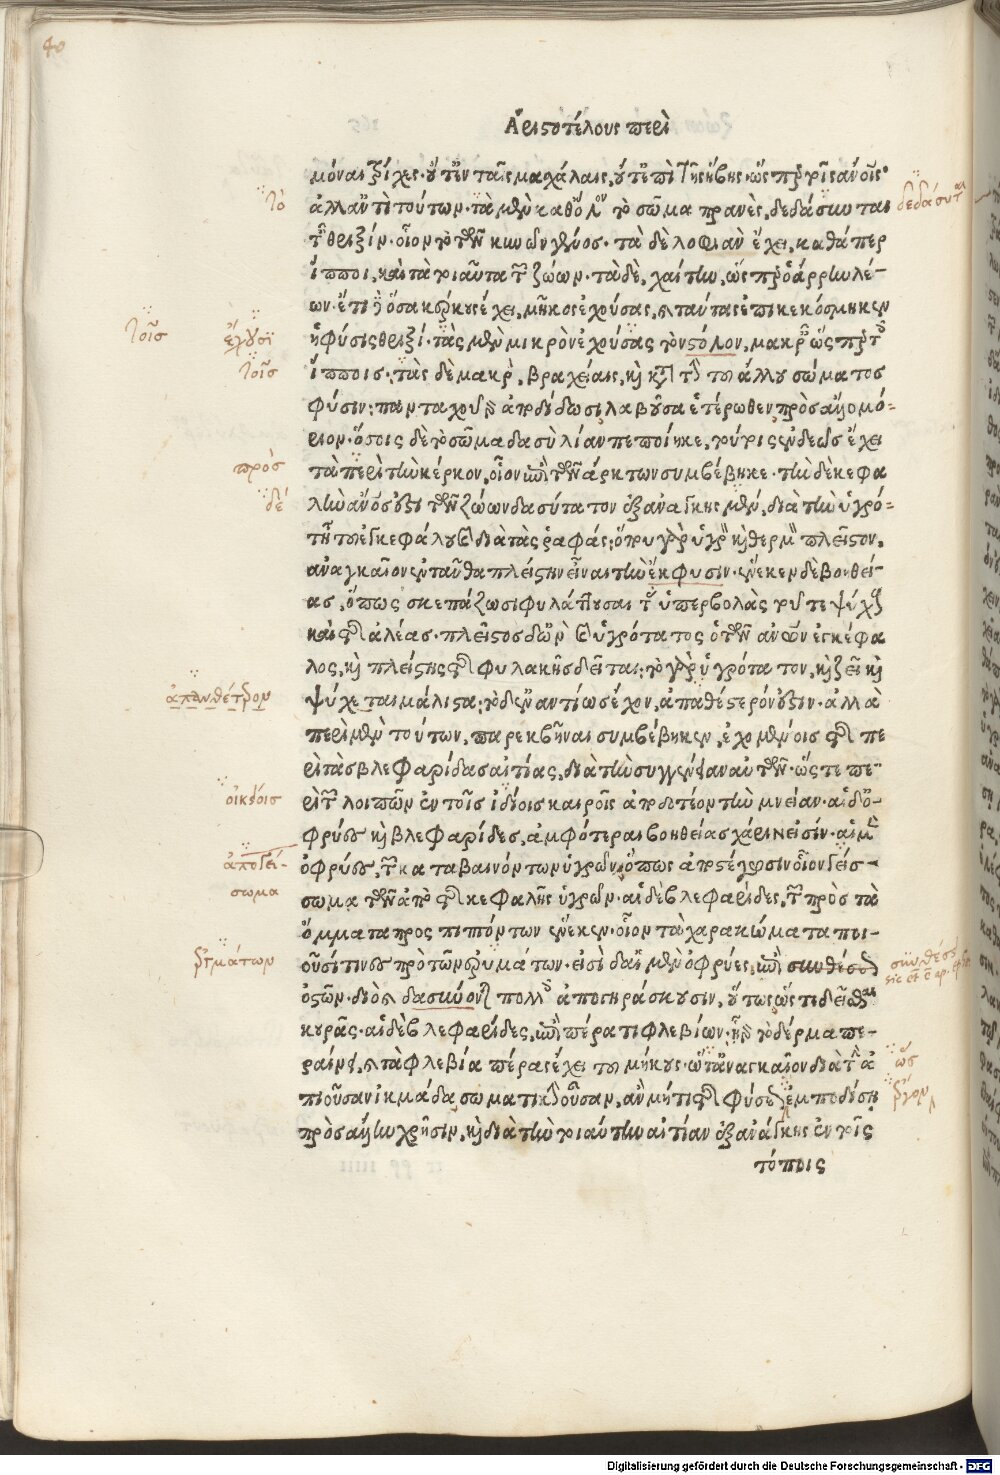 40
Ἀριστοτέλους περὶ
μόναι τρίχες· οὔτ' ἐν ταῖς μαχάλαις, οὔτ' ἐπὶ τῆς ἥβης· ὥσπερ τοῖς ἀνοις·
ἀλλ' ἀντὶ τούτων· τὰ μὲν καθ' ὅλον τὸ σῶμα πρανὲς, δεδάσυνται
τῇ θριξίν· οἷον τὸ τῶν κυνῶν γένος· τὰ δὲ λοφιὰν ἔχει, καθάπερ
ἵπποι, καὶ τὰ τοιαῦτα τῶν ζώων· τὰ δὲ, χαίτην, ὥσπερ ὁ ἄρρην λέ-
ων· ἔτι δ' ὅσα κέρκους ἔχει, μῆκος ἐχούσας, καὶ ταύτας ἐπικεκόσμηκεν
ἡ φύσις θριξί· τὰς μὲν μικρὸν ἐχούσας τὸν στόλον, μακραῖς ὥσπερ τοῖς
ἵπποις· τὰς δὲ μακρὸν, βραχείαις, καὶ κατὰ τὴν τοῦ ἄλλου σώματος
φύσιν: πανταχοῦ γὰρ ἀποδίδωσι λαβοῦσα ἑτέρωθεν πρὸς ἄλλο μό-
ριον· ὅσοις δὲ τὸ σῶμα δασὺ λίαν πεποίηκε, τούτοις ἐνδεῶς ἔχει
τὰ περὶ τὴν κέρκον, οἷον ἐπὶ τῶν ἄρκτων συμβέβηκε· τὴν δὲ κεφα
λὴν ἄνος ἐστι τῶν ζώων δασύτατον ἐξ ἀνάγκης μὲν, διὰ τὴν ὑγρό-
τητα τοῦ ἐγκεφάλου καὶ διὰ τὰς ῥαφάς: ὅπου γὰρ ὑγρὸν καὶ θερμὸν πλεῖστον,
ἀναγκαῖον ἐνταῦθα πλείστην εἶναι τὴν ἔκφυσιν· ἕνεκεν δὲ βοηθεί-
ας, ὅπως σκεπάζωσι φυλάττουσαι τὰς ὑπερβολὰς τοῦ τε ψύχους
καὶ τῆς ἀλέας· πλεῖστος δ' ὢν καὶ ὑγρότατος ὁ τῶν ἀνων ἐγκέφα
λος, καὶ πλείστης τῆς φυλακῆς δεῖται: τὸ γὰρ ὑγρότατον, καὶ ζεῖ καὶ
ψύχεται μάλιστα: τὸ δ' ἐναντίως ἔχον, ἀπαθέστερόν ἐστιν· ἀλλὰ
περὶ μὲν τούτων, παρεκβῆναι συμβέβηκεν, ἐχομένοις τῆς πε
ρὶ τὰς βλεφαρίδας αἰτίας, διὰ τὴν συγγένειαν αὐτῶν· ὥστε πε-
ρὶ τῶν λοιπῶν ἐν τοῖς ἰδίοις καιροῖς ἀποδοτέον τὴν μνείαν· αἱ δ' ὀ-
φρύες καὶ βλεφαρίδες, ἀμφότεραι βοηθείας χάριν εἰσίν· αἱ μὲν
ὀφρύες, τῶν καταβαινόντων ὑγρῶν, ὅπως ἀποστέγωσιν οἷον γείς-
σωμα τῶν ἀπὸ τῆς κεφαλῆς ὑγρῶν· αἱ δὲ βλεφαρίδες, τῶν πρὸς τὰ
ὄμματα προσπιπτόντων ἕνεκεν· οἷον τὰ χαρακώματα ποι-
οῦσί τινες πρὸ τῶν ἐρυμάτων· εἰσὶ δ' αἱ μὲν ὀφρύες, ἐπὶ συνθέσει
ὀστῶν· διὸ καὶ δασύνονται πολλοῖς ἀπογηράσκουσιν, οὕτως ὥστε δεῖσθαι
κουρᾶς· αἱ δὲ βλεφαρίδες, ἐπὶ πέρατι φλεβίων· ᾗ γὰρ τὸ δέρμα πε-
ραίνει, καὶ τὰ φλεβία πέρας ἔχει τοῦ μήκους· ὥστ' ἀναγκαῖον διὰ τὴν ἀ
πιοῦσαν ἰκμάδα σωματικὴν οὖσαν, ἂν μή τι τῆς φύσεως ἐμποδίσῃ
πρὸς ἄλλην χρῆσιν, καὶ διὰ τὴν τοιαύτην αἰτίαν ἐξ ἀνάγκης ἐν τοῖς
τόποις
τὸ
δεδάσυνται
τοῖς
ἔχουσι
τοῖς
πρὸς
δέ
οἰκείοις
ἀπογεί-
σωμα
ἐρυμάτων
συνθέσει
ὡς
ἔργον
Digitalisierung gefördert durch die Deutsche Forschungsgemeinschaft - DFG